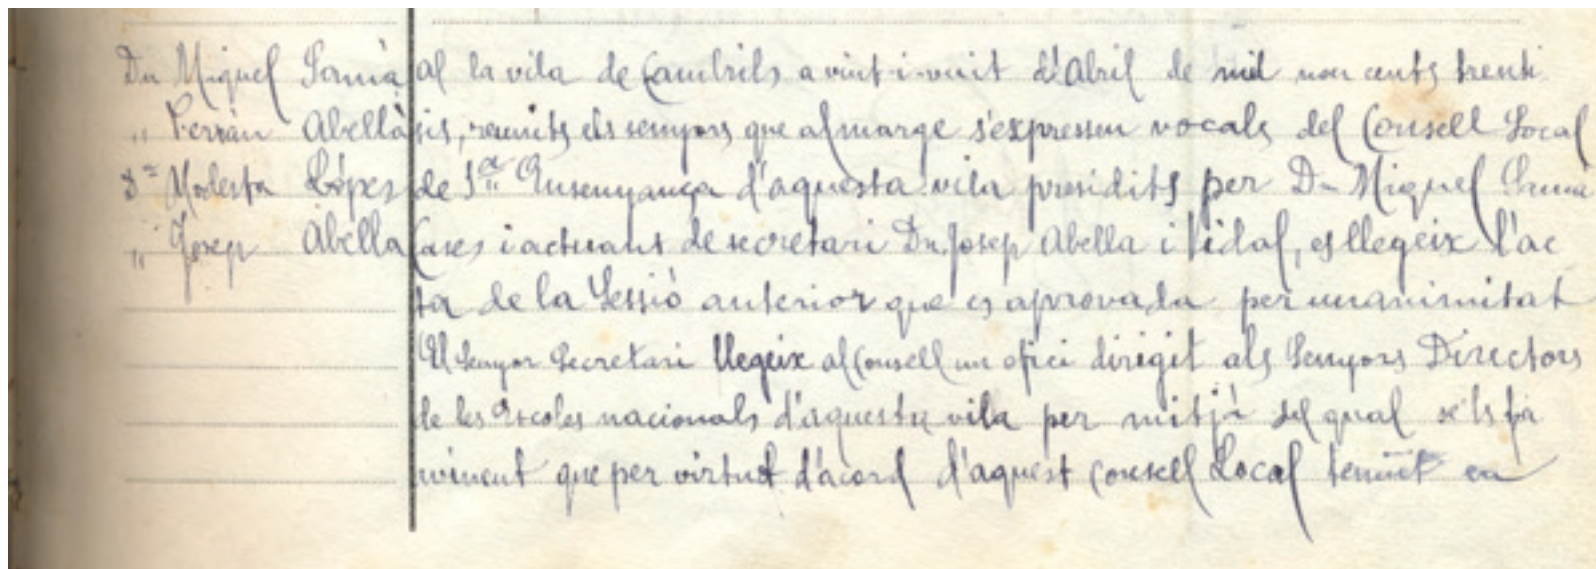 Dn Miquel Samà al la vila de Cambrils a vint-i-vuit d'Abril de mil nou cents trenta
" Ferran Abellà sis, reunits els senyors que al marge s'expressen vocals del Consell Local
Dª Modesta López de 1ª Ensenyança d'aquesta vila presidits per Dn Miquel Samà
" Josep Abella Cases i actuant de secretari Dn Josep Abella i Vidal, es llegeix l'ac
ta de la Sessió anterior que es aprovada per unanimitat
El Senyor Secretari llegeix al Consell un ofici dirigit als Senyors Directors
de les Escoles nacionals d'aquesta vila per mitjà del qual se'ls fa
vinent que per virtut d'acord d'aquest Consell Local tenint en